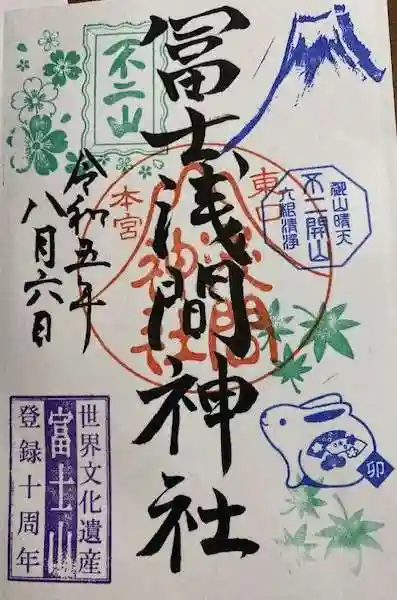 冨士浅間神社
不二山
令和五年
八月六日
東口
本宮
浅間
神社
不二開山
六根清浄
卯
世界文化遺産
富士山
登録十周年